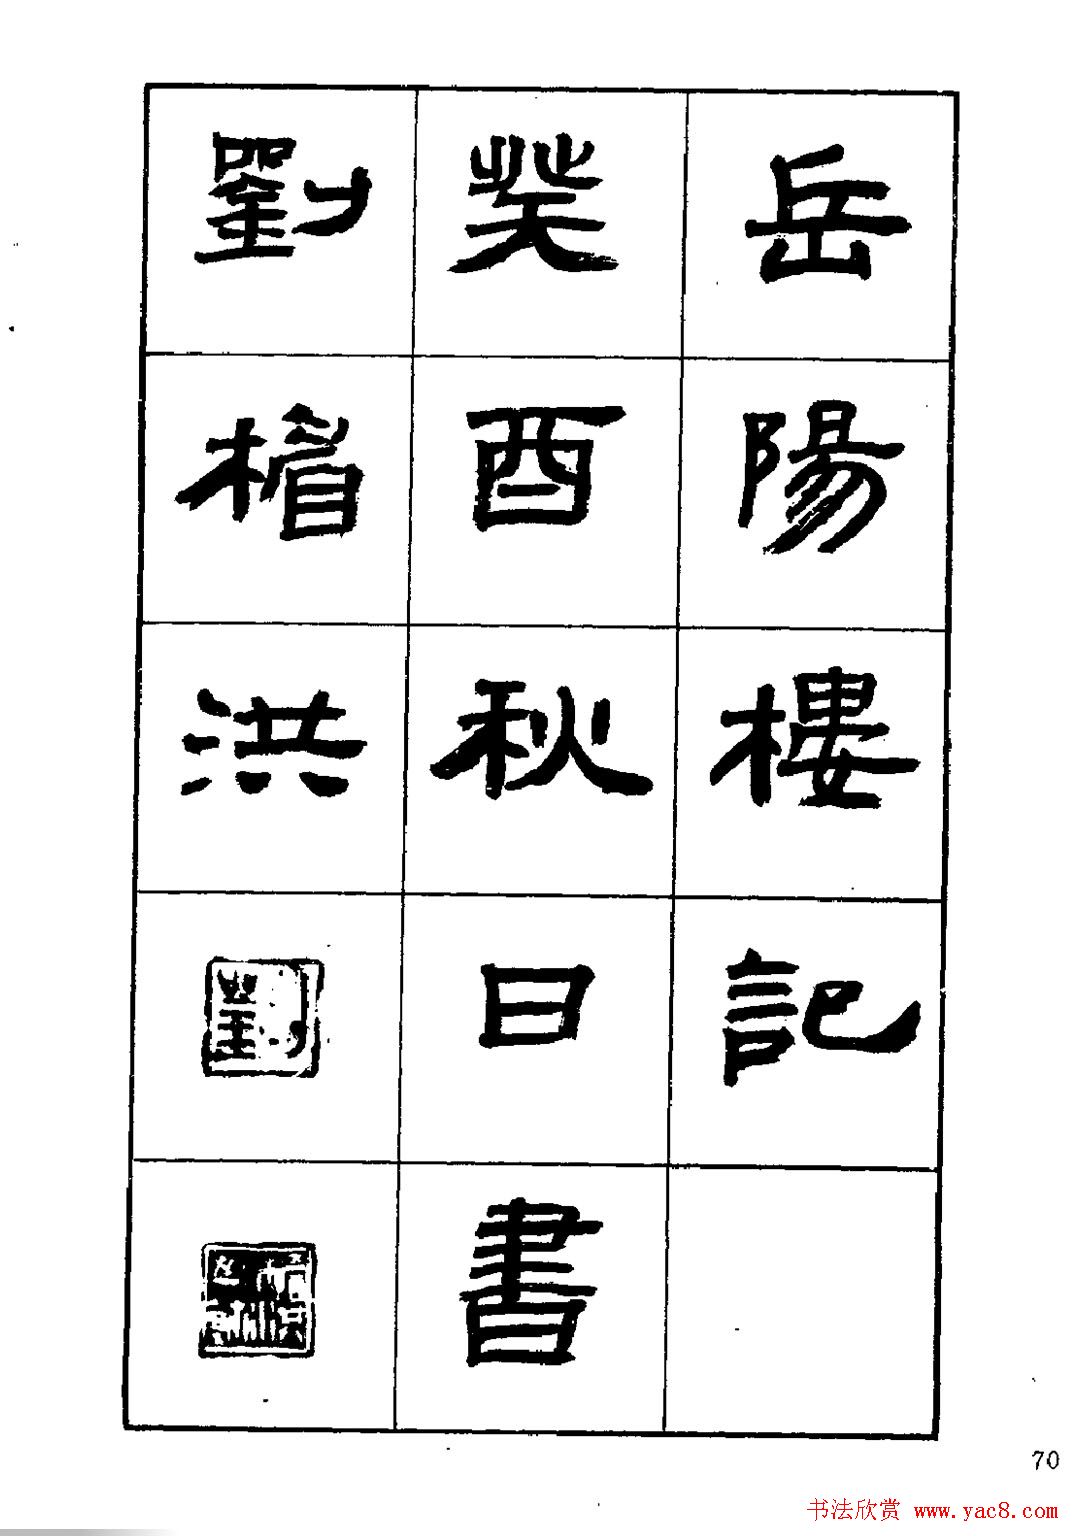 岳陽樓記
癸酉秋日書
劉洪
劉
70
书法欣赏 www.yac8.com